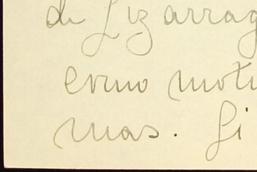 de Lizarrag
como moti
mas. Si